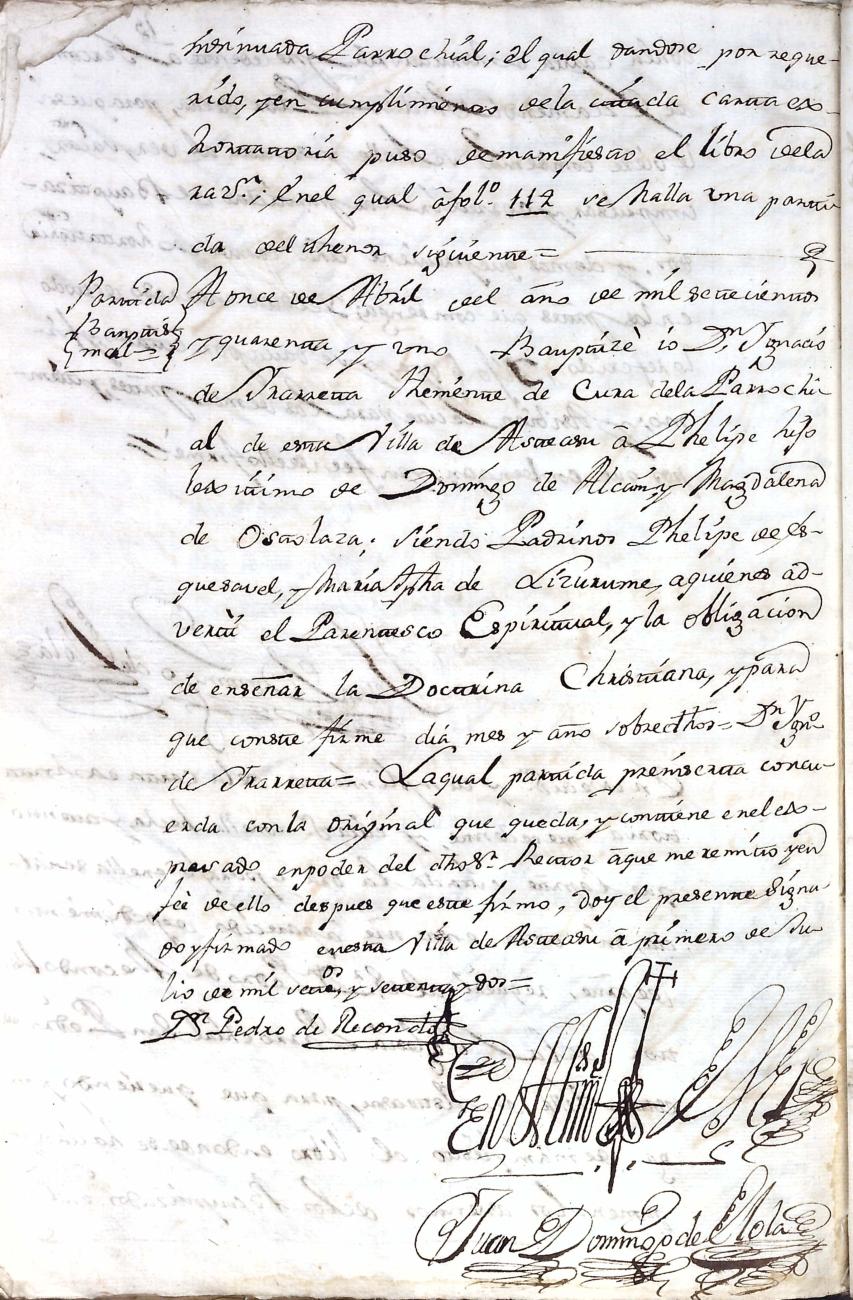 insinuada Parrochial; el qual dandose por reque-
rido, y en cumplimiento de la citada carta ex-
hortatoria puso de manifiesto el libro de la
razon.; Enel qual â fol.º 112 se halla una parti-
da del thenor siguiente =
Partida
Baptis
mal =
A once de Abril del año de mil setecientos
y quarenta, y uno Baupticè io Dn. Ygnacio
de Yrarreta Theniente de Cura dela Parrochi-
al de esta Villa de Asteasu â Phelipe hijo
lexitimo de Domingo de Alcain, y Magdalena
de Ostolaza; siendo Padrinos Phelipe de Es-
quesavel, y Maria Jpha de Lizurume, a quienes ad-
vertì el Parentesco Espiritual, y la obligacion
de enseñar la Doctrina Christiana, y para
que conste firme dia mes y año sobredhos = Dn Ygn.º
de Yrarreta = La qual partida preinserta concu-
erda con la original que queda, y contiene enel ex-
presado en poder del dho Sr. Rector âque me remito y en
feè de ello despues que este firmo, doy el presente signa-
do y firmado en esta Villa de Asteasu â primero de Ju-
lio de mil setos. y setenta y dos =
Dn. Pedro de Recondo
En testim.º de Verd.
Juan Domingo de Elola